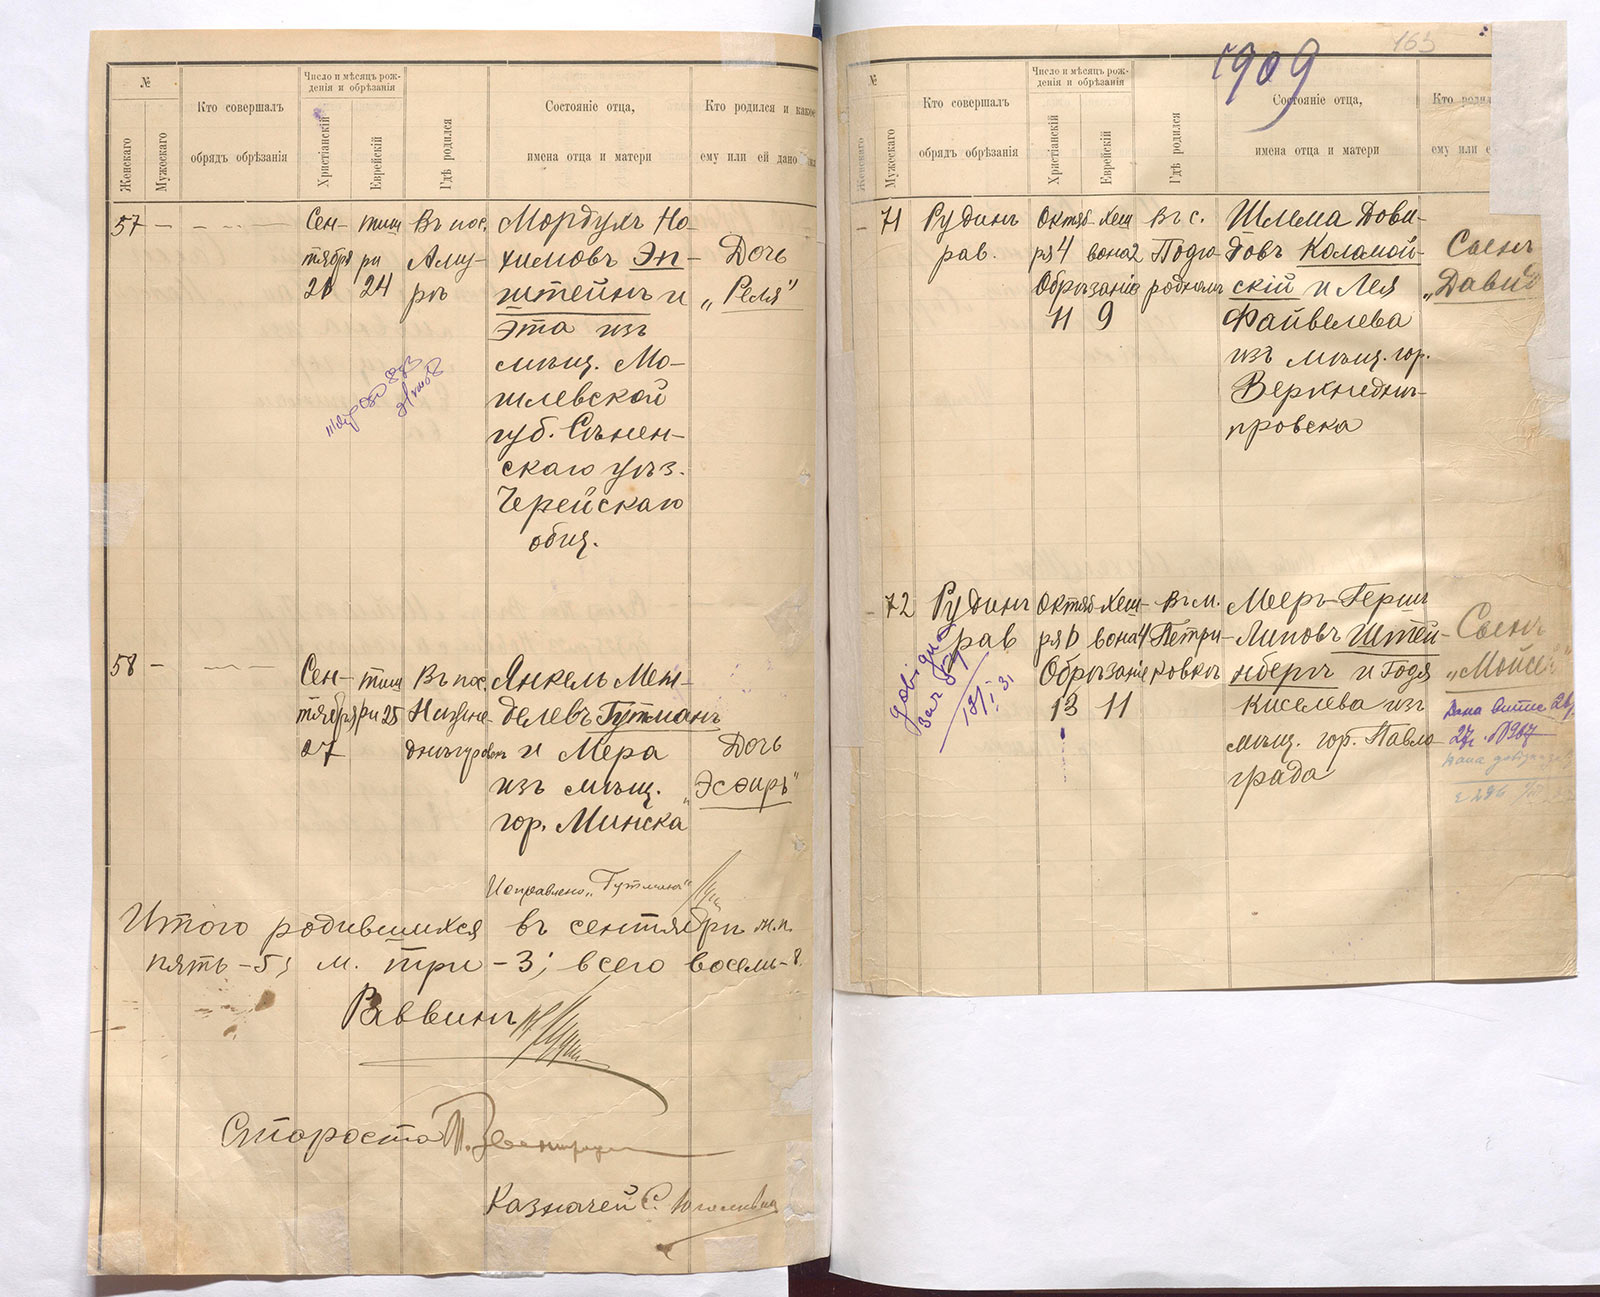 №
Женскаго
Мужескаго
Кто совершалъ
обрядъ обрѣзанія
Число и мѣсяцъ рож-
денія и обрѣзанія
Христіанскій
Еврейскій
Гдѣ родился
Состояніе отца,
имена отца и матери
Кто родился и какое
ему или ей дано
57
Сен-
тября
Тиш
ри
24
Въ пос.
Аму-
рѣ
Мордухъ Но-
химовъ Эп-
штейнъ и
Эта изъ
мѣщ. Мо-
гилевской
губ. Сѣнен-
скаго уѣз.
Черейскаго
общ.
Дочь
„Реля"
58
Сен-
тября
27
Тиш
ри 25
Въ пос.
Нижне-
Янкель Мен-
делевъ Гутманъ
и Мера
изъ мѣщ.
гор. Минска
Дочь
„Эсфирь"
Исправлено „Гутманъ"
Итого родившихся въ сентябрѣ ж.п.
пять – 5; м. три – 3; всего восемь – 8.
Раввинъ
Староста
Казначей С.
1909
163
№
Женскаго
Мужескаго
Кто совершалъ
обрядъ обрѣзанія
Число и мѣсяцъ рож-
денія и обрѣзанія
Христіанскій
Еврейскій
Гдѣ родился
Состояніе отца,
имена отца и матери
Кто родил
ему или е
71
Рудинъ
рав.
Октяб-
ря 4
Обрѣзаніе
11
Хеш
вона 2
9
Въ с.
Подго
родномъ
Шлема Дови-
довъ Коломой-
скій и Лея
Файвелева
изъ мѣщ. гор.
Верхнеднѣ-
провска
Сынъ
„Давид
72
Рудинъ
рав
Октяб-
ря 6
Обрѣзаніе
13
Хеш-
вона 4
11
Въ м.
Петри-
ковкѣ
Мееръ-Герш
Липовъ Штей-
нбергъ и Годя
Киселева изъ
мѣщ. гор. Павло-
града
Сынъ
„Мойсей"